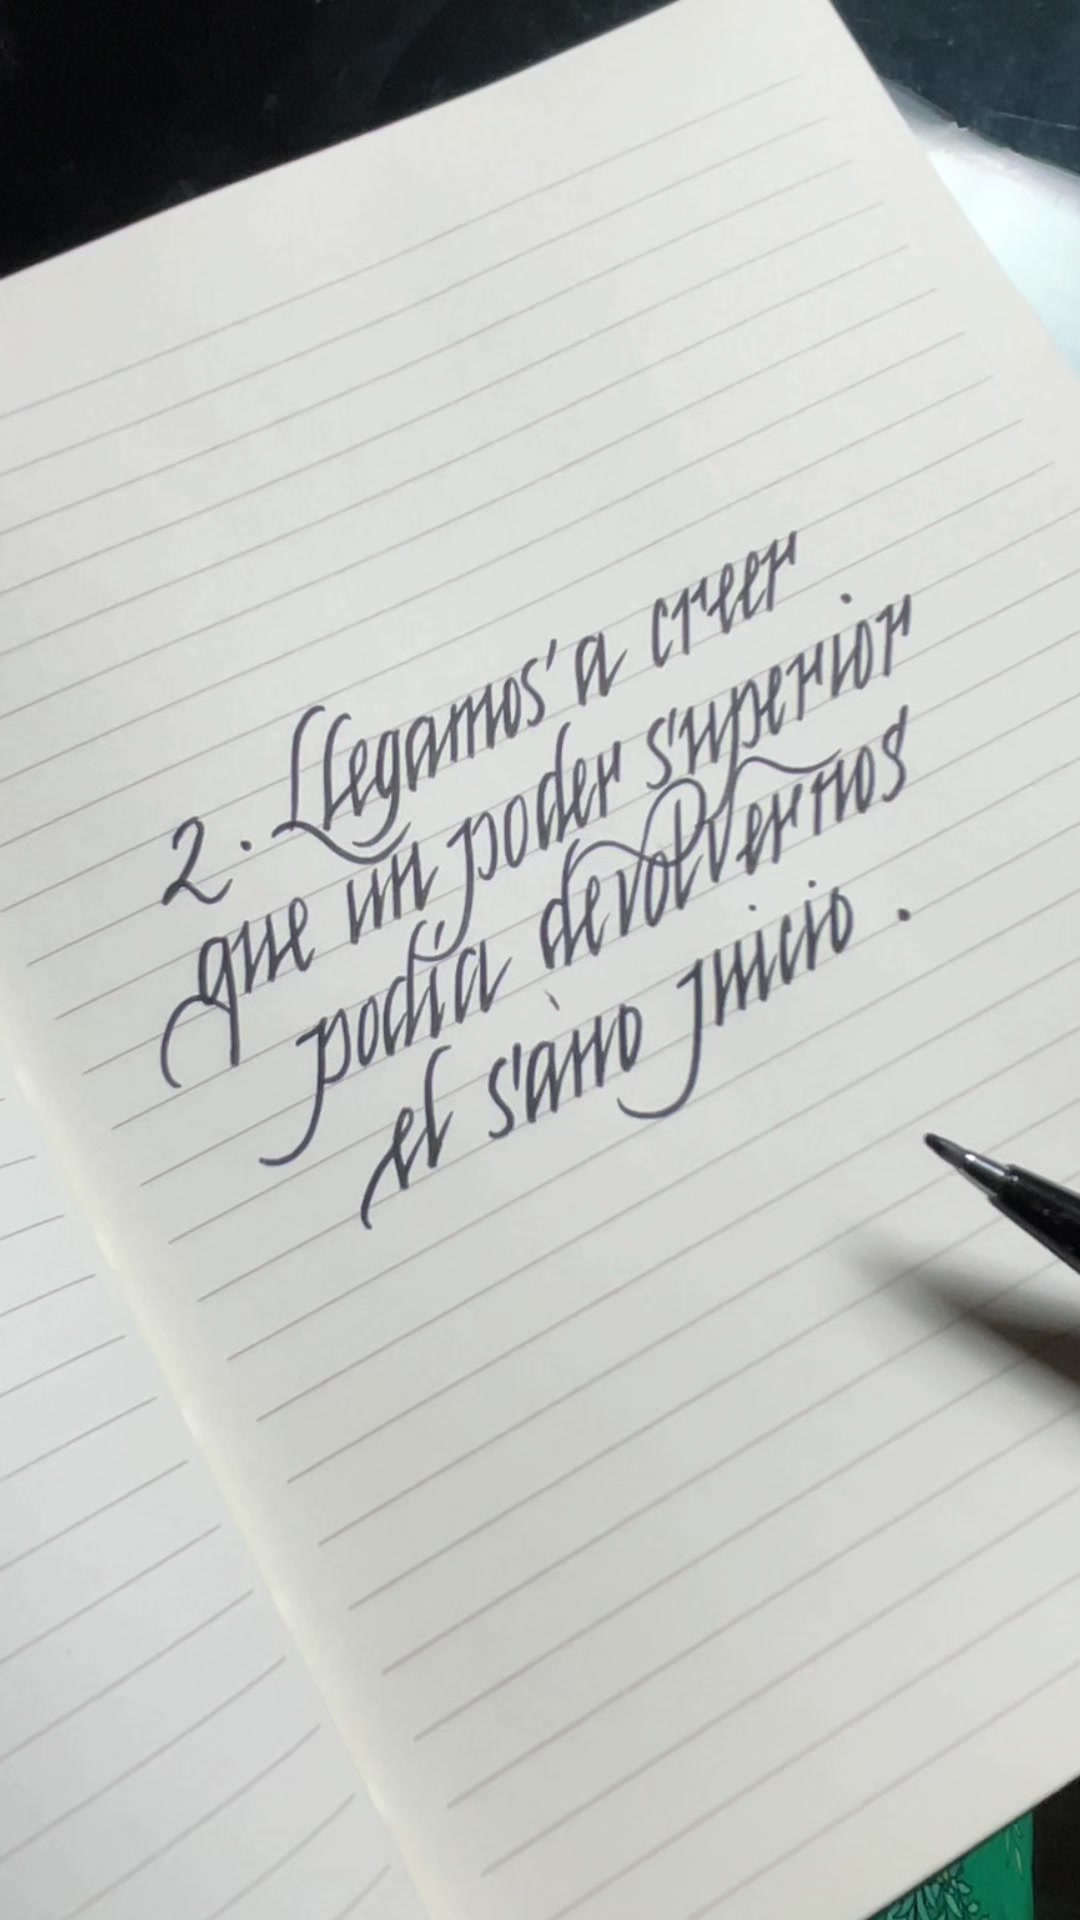 2. Llegamos a creer
que un poder superior
podía devolvernos
el sano juicio.